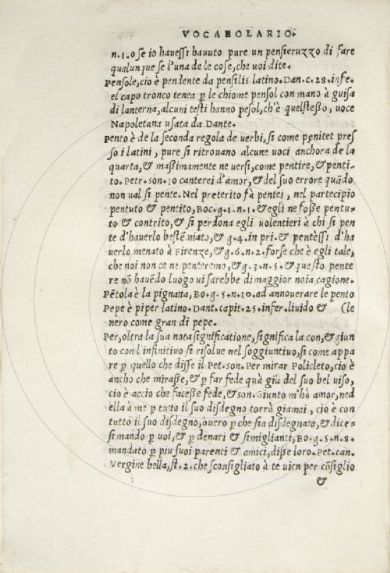 VOCABOLARIO.
n.1. o se io havessi havuto pure un pensieruzzo di fare
qualunque se l'una de le cose, che voi dite.
Pensole, cio è pendente da pensilis latino. Dan. c. 28. infe.
el capo tronco tenea ꝑ le chiome pensol con mano à guisa
di lanterna, alcuni testi hanno pesol, ch'è quelstesso, voce
Napoletana usata da Dante.
Pento è de la seconda regola de verbi, si come penitet pres
so i latini, pure si ritrouano alcune voci anchora de la
quarta, & massimamente ne versi, come pentire, & penti-
to. Petr. son. io canterei d'amor, & del suo errore quãdo
non ual si pente. Nel preterito fà pentei, nel partecipio
pentuto & pentito, Bo. g. 1. n. 1. & egli ne fosse pentu-
to & contrito, & si perdona egli uolentieri à chi si pen
te d'hauerlo bestẽmiato, & g. 4. in pri. & pentessi d'ha
uerlo menato à Firenze, & g. 6. n. 2. forse che è egli tale,
che noi non ce ne penteremo, & g. 3. n. 5. & questo pente
re nõ hauẽdo luogo ui sarebbe di maggior noia cagione.
Pẽtola è la pignata, Bo. g. 5. n. 10. ad annouerare le pento
Pepe è piper latino. Dant. capit. 25. infer. liuido & (le
nero come gran di pepe.
Per, oltra la sua nota significatione, significa la con, & giun
to con l'infinitiuo si risolue nel soggiuntiuo, si come appa
re ꝑ quello che disse il Pet. son. Per mirar Policleto, cio è
ancho che mirasse, & ꝑ far fede quà giù del suo bel uiso,
cio è accio che facesse fede, & son. Giunto m'hà amor, ned
ella à me ꝑ tutto il suo disdegno torrà giamai, cio è con
tutto il suo disdegno, ouero ꝑ che sia disdegnata, & dice-
si mando ꝑ uoi, & ꝑ denari & simiglianti, Bo. g. 5. n. 8.
mandato ꝑ piu suoi parenti & amici, disse loro. Pet. can.
Vergine bella, st. 2. che sconsigliato à te uien per cõsiglio
&